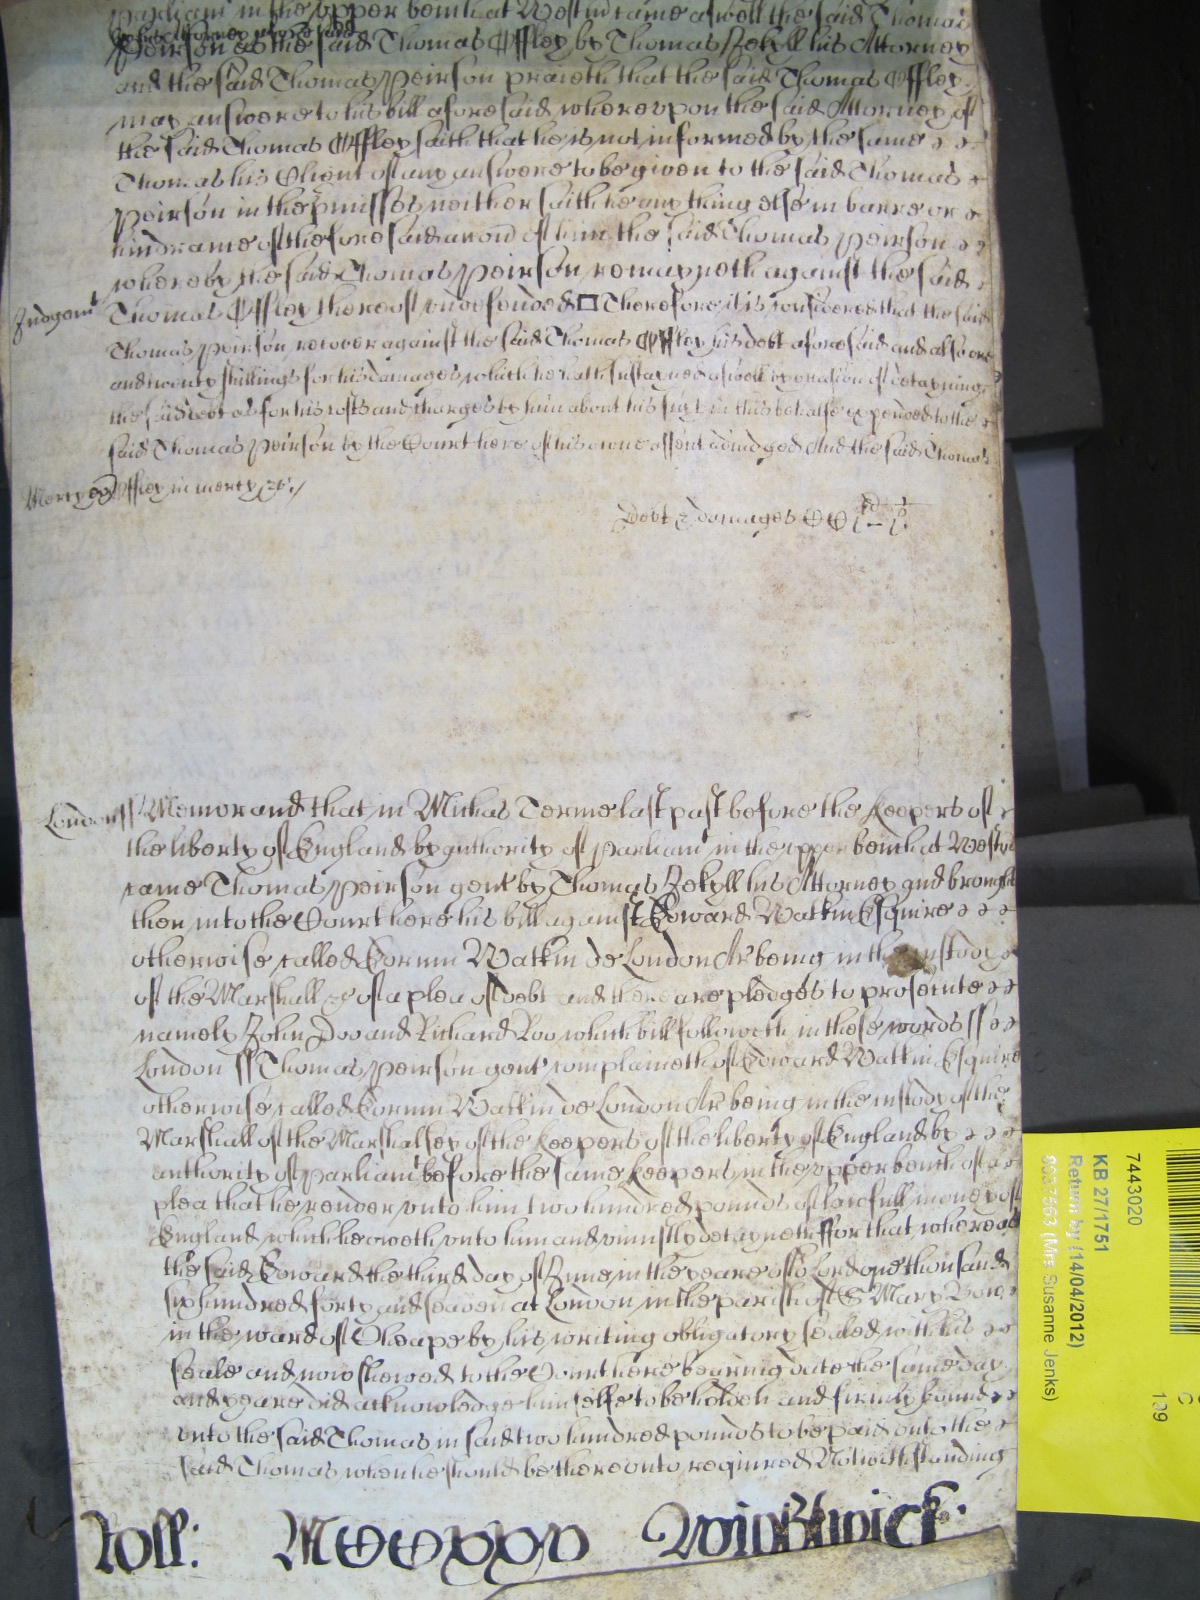 Parliam' in the upper bench at Westm' came aswell the said Thomas
Peirson as the said Thomas Offley by Thomas Jekyll his Attorney
and the said Thomas Peirson praieth that the said Thomas Offley
may answere to his bill aforesaid whereupon the said Attorney of
the said Thomas Offley saith that he is not informed by the same
Thomas his Client of any answere to be given to the said Thomas
Peirson in the p'misses neither saith he any thing else in barre or
hindrance of the foresaid accion of him the said Thomas Peirson
whereby the said Thomas Peirson remayneth against the said
Judgam't
Thomas Offley thereof undefended Therefore it is considered that the said
Thomas Peirson recover against the said Thomas Offley his debt aforesaid and also one
and twenty shillings for his damages which he hath sustayned aswell by occasion of detayning
the said debt as for his costs and charges by him about his suyt in this behalfe expended to the
said Thomas Peirson by the Court here of his owne assent adiudged And the said Thomas
Mercy
Offley in mercy &c
Debt & damages CC
London ss Memorand that in Michas Terme last past before the keepers of
the liberty of England by authority of Parliam' in the upper bench at Westm'
came Thomas Peirson gent by Thomas Jekyll his Attorney and brought
then into the Court here his bill against Edward Watkin Esquire
otherwise called Edrum Watkin de London Ar being in the custody
of the Marshall &c of a plea of debt and there are pledges to prosecute
namely John Doo and Richard Roo which bill followeth in these words ss
London ss Thomas Peirson gent complaineth of Edward Watkin Esquire
otherwise called Edrum Watkin de London Ar being in the custody of the
Marshall of the Marshalsey of the keepers of the liberty of England by
authority of Parliam' before the same keepers in the upper bench of a
plea that he render unto him two hundred pounds of lawfull money of
England which he oweth unto him and uniustly detayneth ffor that whereas
the said Edward the third day of June in the yeare of o' Lord one thousand
six hundred forty and seaven at London in the parish of S' Mary Bow
in the ward of Cheape by his writing obligatory sealed with his
seale and now shewed to the Court here bearing date the same day
and yeare did acknowledge himselfe to be holden and firmly bound
unto the said Thomas in said two hundred pounds to be paid unto the
said Thomas when he should be thereunto required Notwithstanding
Roll: MCCXXV Wightwick
7443020
KB 27/1751
Return by (14/04/2012)
(Mrs Susanne Jenks)
C